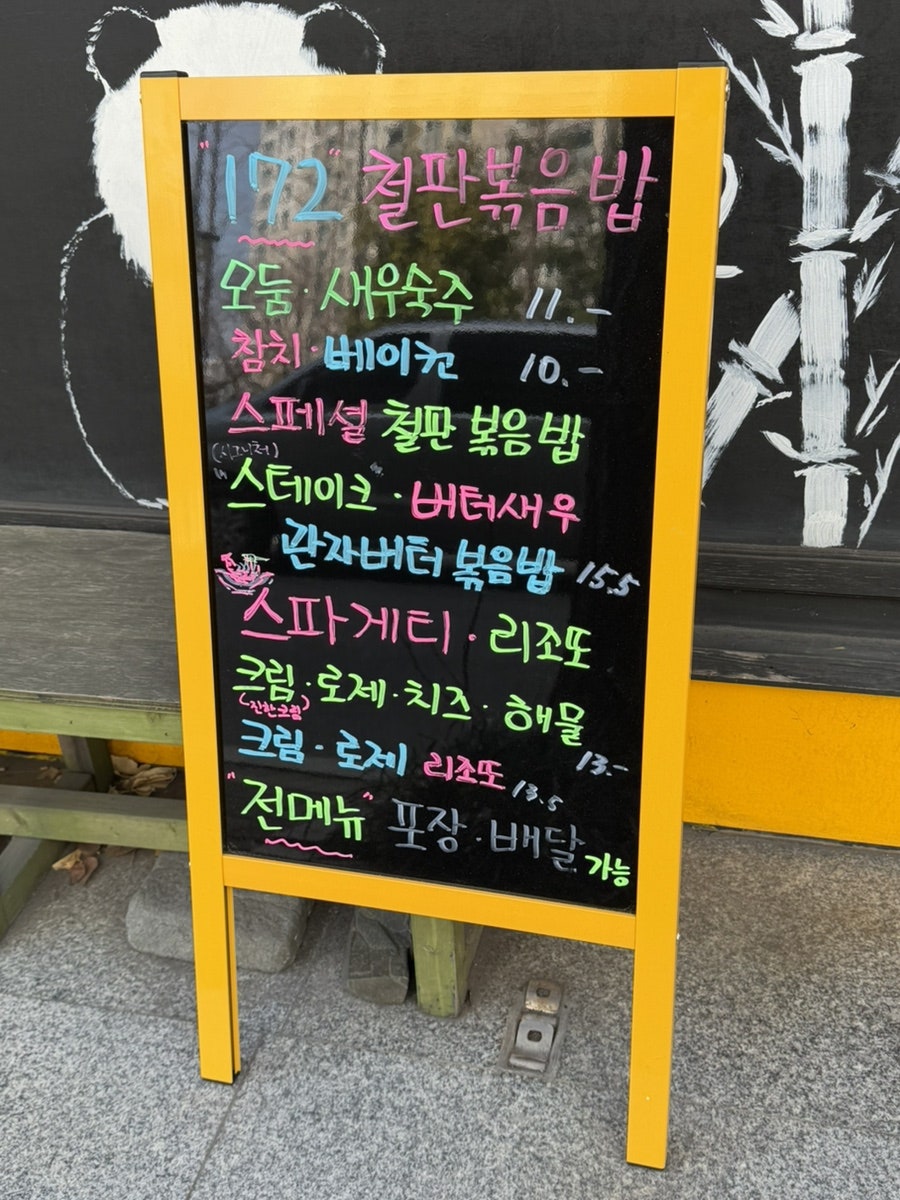 "172" 철판볶음밥
모둠·새우숙주 11.-
참치·베이컨 10.-
스페셜 철판 볶음밥
(시그니처)
"스테이크"·버터새우
관자버터 볶음밥 15.5
스파게티·리조또
크림·로제·치즈·해물
(진한크림) 13.-
크림·로제 리조또 13.5
"전메뉴" 포장·배달 가능